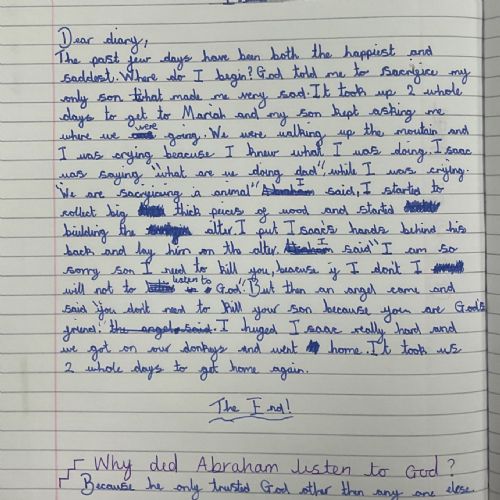 Dear diary,
The past few days have been both the happiest and
saddest. Where do I begin? God told me to sacrifice my
only son that made me very sad. It took up 2 whole
days to get to Mariah and my son kept asking me
where we were going. We were walking up the mountain and
I was crying beacuse I knew what I was doing. Isaac
was saying "what are we doing dad" while I was crying.
"We are sacryficing a animal" I said, I started to
collect big thick peices of wood and started
biulding the alter. I put Isaacs hands behind his
back and lay him on the alter. I said "I am so
sorry son I need to kill you, beacuse if I don't I
will not to listen to God". But then an angel came and
said "you don't need to kill your son because you are Gods
friend. I huged Isaac really hard and
we got on our donkys and went home. It took us
2 whole days to get home again.
The End!
Why did Abraham listen to God?
Because he only trusted God other then any one else